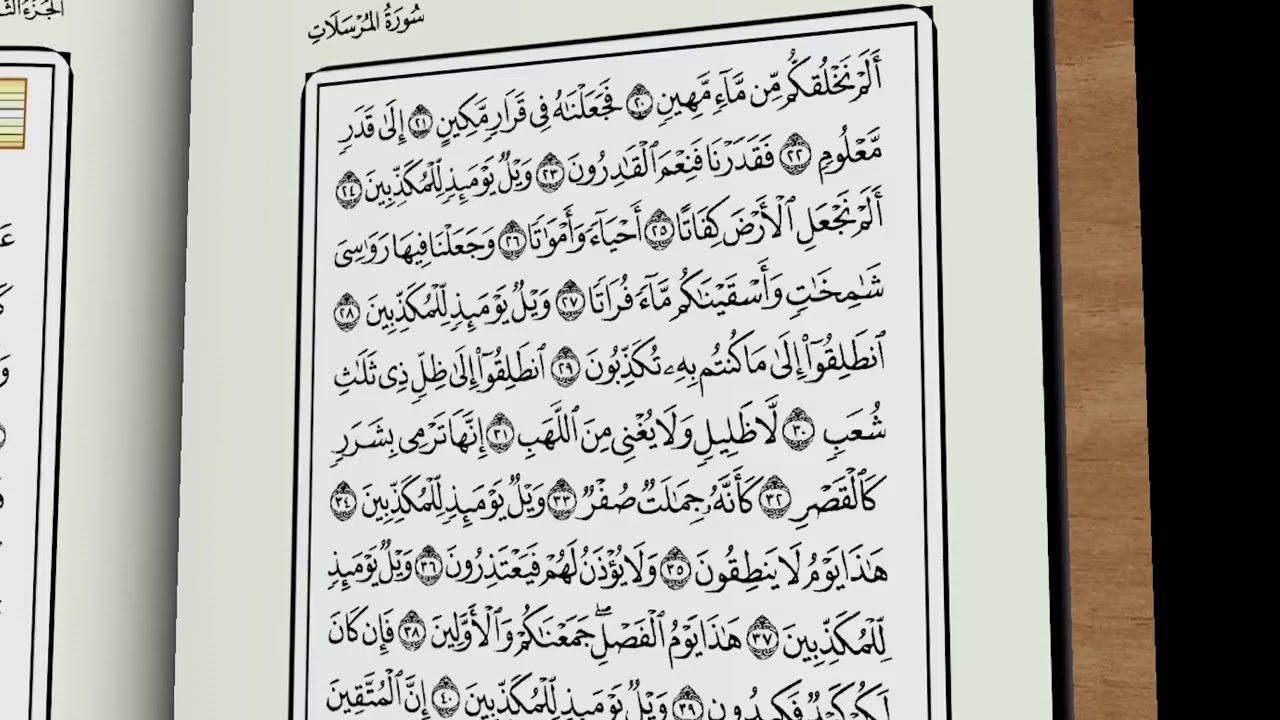 سُورَةُ المُرْسَلَاتِ
أَلَمْ نَخْلُقكُّم مِّن مَّآءٍ مَّهِينٍ ٢٠ فَجَعَلْنَٰهُ فِى قَرَارٍ مَّكِينٍ ٢١ إِلَىٰ قَدَرٍ
مَّعْلُومٍ ٢٢ فَقَدَرْنَا فَنِعْمَ ٱلْقَٰدِرُونَ ٢٣ وَيْلٌ يَوْمَئِذٍ لِّلْمُكَذِّبِينَ ٢٤
أَلَمْ نَجْعَلِ ٱلْأَرْضَ كِفَاتًا ٢٥ أَحْيَآءً وَأَمْوَٰتًا ٢٦ وَجَعَلْنَا فِيهَا رَوَٰسِىَ
شَٰمِخَٰتٍ وَأَسْقَيْنَٰكُم مَّآءً فُرَاتًا ٢٧ وَيْلٌ يَوْمَئِذٍ لِّلْمُكَذِّبِينَ ٢٨
ٱنطَلِقُوٓا۟ إِلَىٰ مَا كُنتُم بِهِۦ تُكَذِّبُونَ ٢٩ ٱنطَلِقُوٓا۟ إِلَىٰ ظِلٍّ ذِى ثَلَٰثِ
شُعَبٍ ٣٠ لَّا ظَلِيلٍ وَلَا يُغْنِى مِنَ ٱللَّهَبِ ٣١ إِنَّهَا تَرْمِى بِشَرَرٍ
كَٱلْقَصْرِ ٣٢ كَأَنَّهُۥ جِمَٰلَتٌ صُفْرٌ ٣٣ وَيْلٌ يَوْمَئِذٍ لِّلْمُكَذِّبِينَ ٣٤
هَٰذَا يَوْمُ لَا يَنطِقُونَ ٣٥ وَلَا يُؤْذَنُ لَهُمْ فَيَعْتَذِرُونَ ٣٦ وَيْلٌ يَوْمَئِذٍ
لِّلْمُكَذِّبِينَ ٣٧ هَٰذَا يَوْمُ ٱلْفَصْلِ ۖ جَمَعْنَٰكُمْ وَٱلْأَوَّلِينَ ٣٨ فَإِن كَانَ
لَكُمْ كَيْدٌ فَكِيدُونِ ٣٩ وَيْلٌ يَوْمَئِذٍ لِّلْمُكَذِّبِينَ ٤٠ إِنَّ ٱلْمُتَّقِينَ